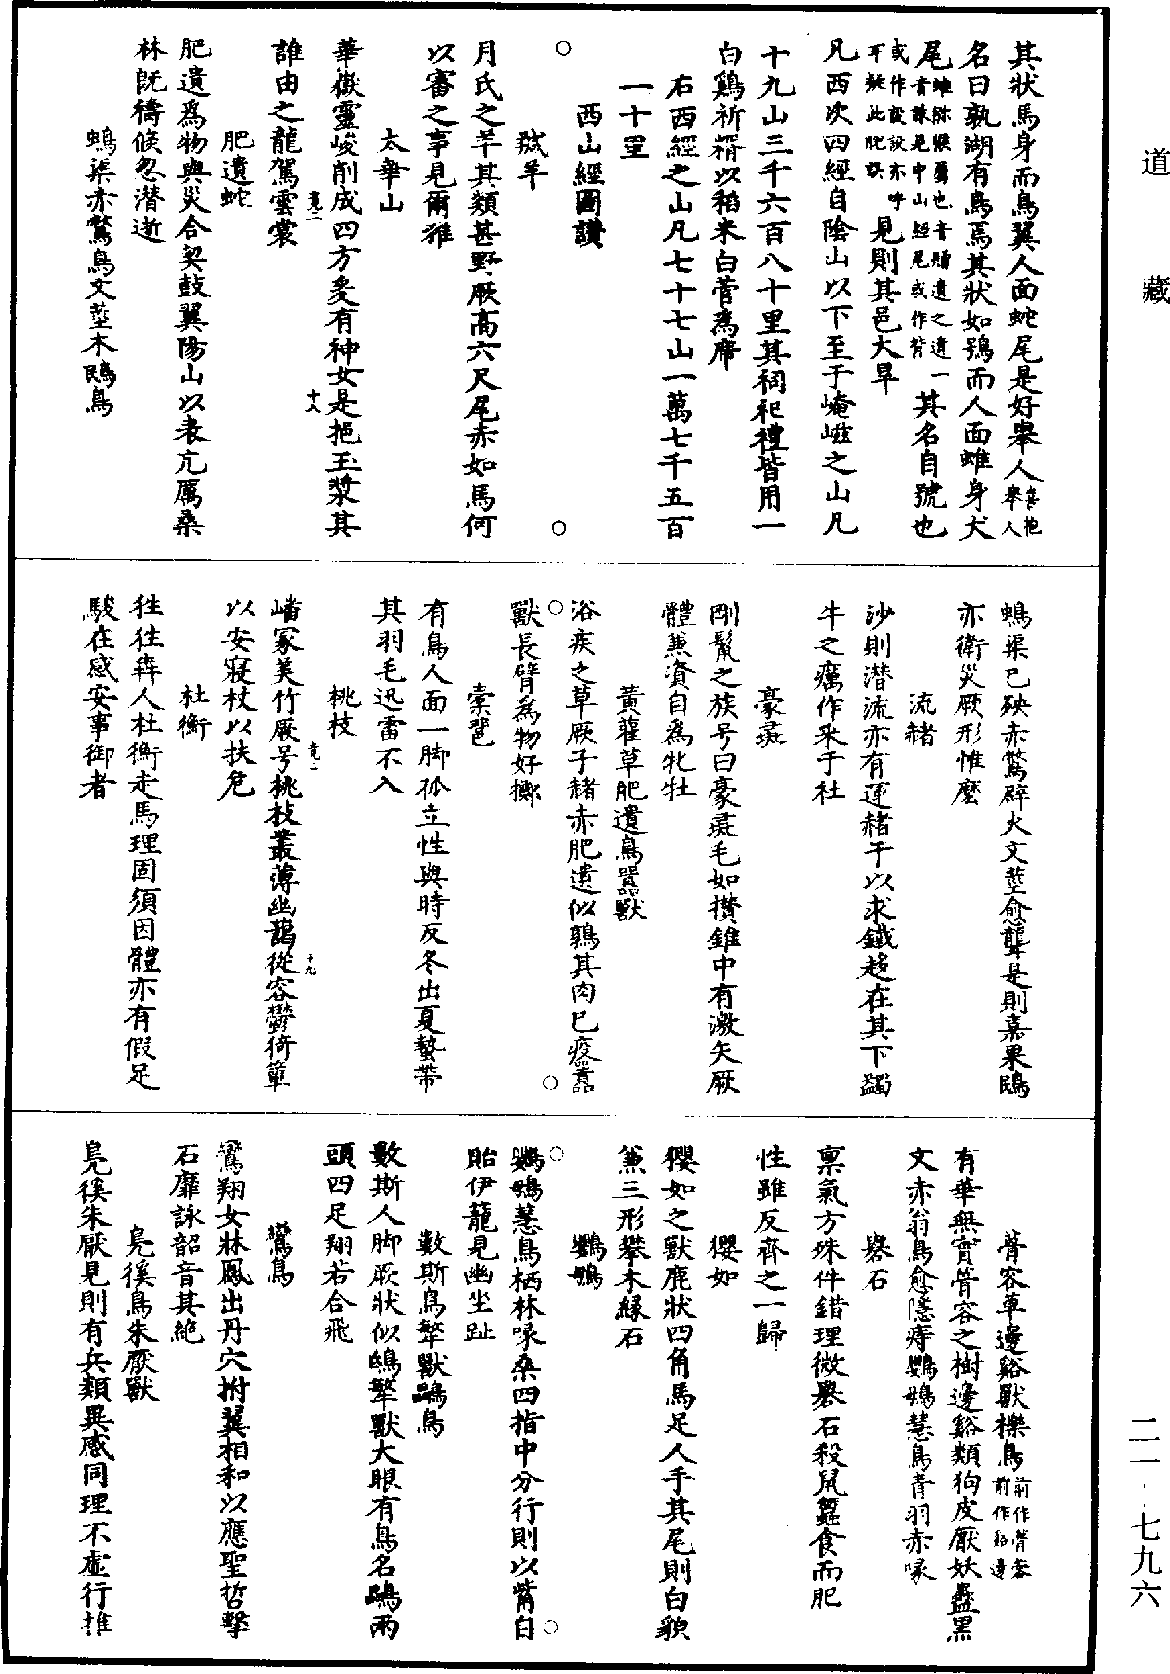 道藏
二一·七九六
其狀馬身而鳥翼人面蛇尾是好舉人喜抱舉人
名曰孰湖有鳥焉其狀如鴞而人面蜼身犬
尾蜼獼猴屬也音贈遺之遺一音誄見中山經尾或作皆其名自號也
或作設設亦呼耳疑此脫誤見則其邑大旱
凡西次四經自陰山以下至于崦嵫之山凡
十九山三千六百八十里其祠祀禮皆用一
白鷄祈糈以稻米白菅爲席
右西經之山凡七十七山一萬七千五百
一十里
西山經圖讚
羬羊
月氏之羊其類甚野厥高六尺尾赤如馬何
以審之事見爾雅
太華山
華嶽靈峻削成四方爰有神女是挹玉漿其
誰由之龍駕雲裳
竟二
十八
肥遺蛇
肥遺爲物與災合契鼓翼陽山以表亢厲桑
林既禱倏忽潜逝
鴖渠赤鷩鳥文莖木鴖鳥
鴖渠已殃赤鷩辟火文莖愈聾是則嘉果鴖
亦衛災厥形惟麼
流赭
沙則潜流亦有運赭于以求鐵趍在其下蠲
牛之癘作采于社
豪彘
剛鬣之族号曰豪彘毛如攅錐中有激矢厥
體兼資自爲牝牡
黄雚草肥遺鳥嚻獸
浴疾之草厥子赭赤肥遺似鶉其肉已疫嚻
獸長臂為物好擲
橐𩇯
有鳥人面一脚孤立性與時反冬出夏蟄帶
其羽毛迅雷不入
桃枝
嶓冢美竹厥号桃枝叢薄幽藹從容鬱猗簟
以安寢杖以扶危
竟二
十九
杜衡
狌狌犇人杜衡走馬理固須因體亦有假足
駿在感安事御者
菁容草邊谿獸櫟鳥前作菁蓉前作谿邊
有華無實菅容之樹邊谿類狗皮厭妖蠱黑
文赤翁鳥愈隱痔鸚䳇慧鳥青羽赤喙
礜石
禀氣方殊件錯理微礜石殺鼠蠶食而肥
性雖反齊之一歸
玃如
玃如之獸鹿狀四角馬足人手其尾則白貌
兼三形攀木緣石
鸚䳇
鸚䳇慧鳥栖林喙桑四指中分行則以觜自
貽伊籠見幽坐趾
數斯鳥犛獸鸓鳥
數斯人脚厥狀似鴟犛獸大眼有鳥名鸓兩
頭四足翔若合飛
鸞鳥
鸞翔女牀鳳出丹穴拊翼相和以應聖哲擊
石靡詠韶音其絶
鳧徯鳥朱厭獸
鳧徯朱厭見則有兵類異感同理不虛行推